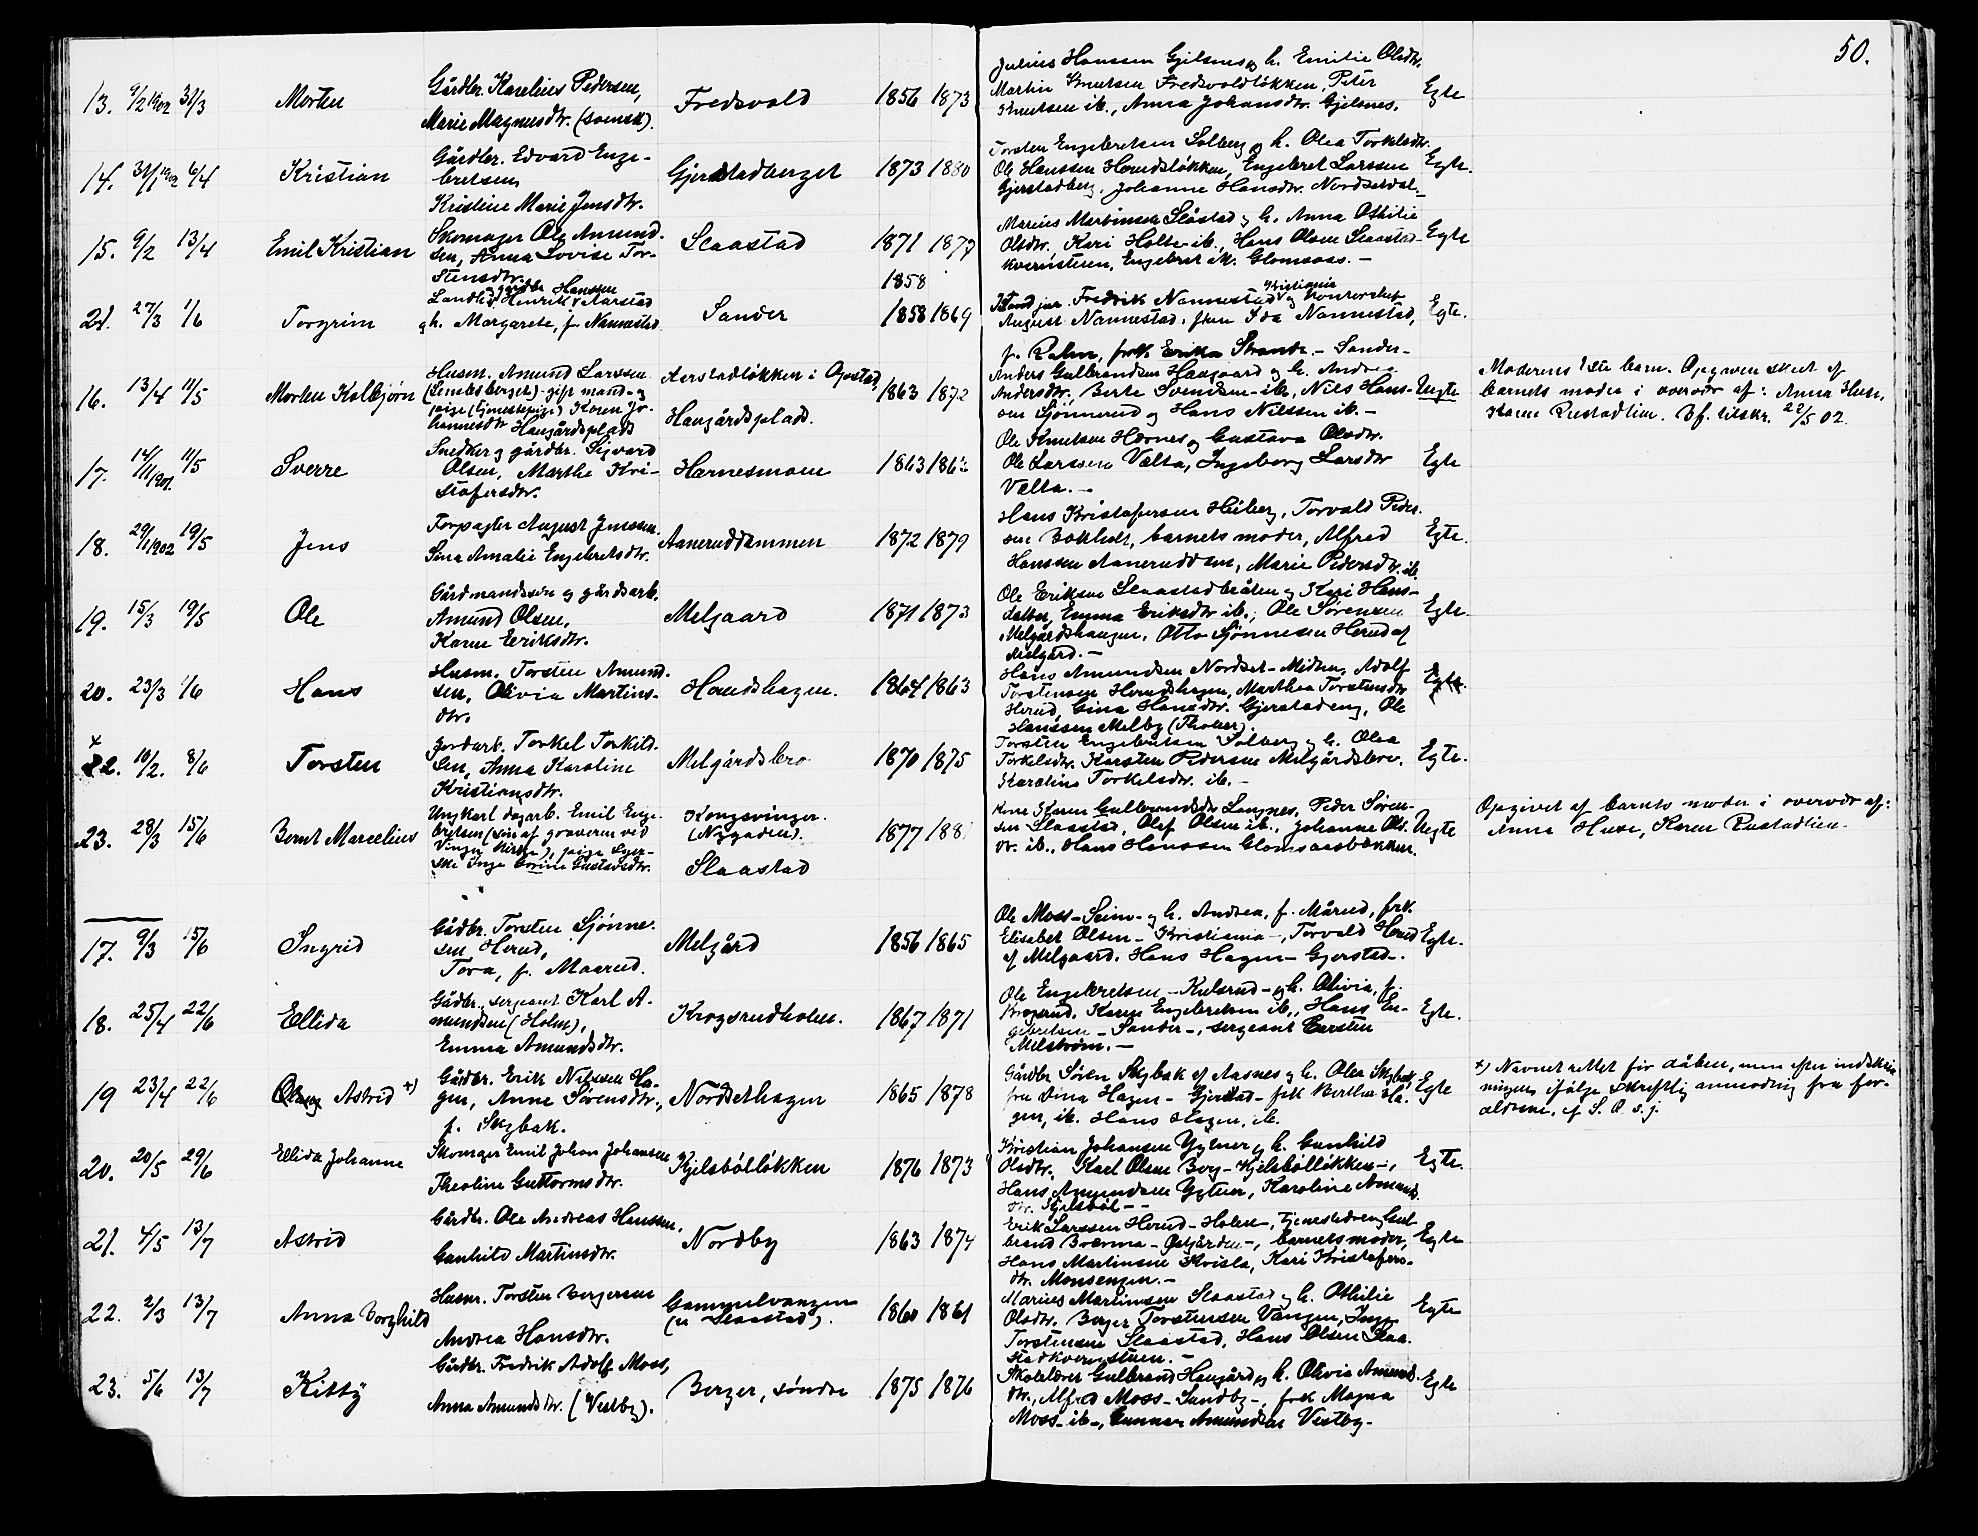 50.
13. 9/2 1902 31/3 Morten Gårdbr. Karelius Pedersen, Marie Magnusdtr. (svensk). Fredsvold 1856 1873
Julius Hanssen Gjelsnes og h. Emilie Olsdtr.
Martin Knutsen Fredsvoldløkken, Peter
Knutsen ib., Anna Johansdtr. Gjelsnes. Egte
14. 31/1 1902 6/4 Kristian Gårdbr. Edvard Enge-
bretsen,
Kristine Marie Jensdtr. Gjerstadberget 1873 1880
Torsten Engebretsen Solberg og h. Olea Torkelsdtr.
Ole Hanssen Herudsløkken, Engebret Larssen
Gjerstadberg, Johanne Hansdtr. Nordsetdal. Egte.
15. 9/2 13/4 Emil Kristian Skomager Ole Amund-
sen, Anna Lovise Tor-
stensdtr. Slaastad 1871 1877
Marius Martinsen Slåstad og h. Anna Othilie
Olsdtr. Kari Holter ib., Hans Olsen Slaastad-
kvernstuen, Engebret ib. Glomsaas. – Egte
21. 27/3 1/6 Torgrim Landh. og gårdbr. Henrik Hanssen Aarstad
og h. Margarete, f. Nannestad Sander 1858 1858 1869
Fredrik Nannestad Kristiania og kontorchef
August Nannestad, fken Ida Nannestad, Egte.
f. Rahm, frk. Erika Strande. – Sander –
16. 13/4 11/5 Morten Kolbjørn Husm. Amund Larssen
(Lundsberget) – gift mand – og
pige (tjenestepige) Karen Jo-
hannesdtr. Haugårdsplads Aarstadløkken i Opstad,
Haugårdsplads. 1863 1872
Anders Gulbrandsen Haugaard og h. Andrea
Andersdtr., Berte Svendsen – ib., Nils Hans-
sen Sønnerud og Hans Nilssen ib. – Uegte
Moderens 1ste barn. Opgiven skeet af
barnets moder i overvær af: Anna Huse,
Karen Rustadlien. Bf. tilskr. 22/5 02.
17. 14/11 1901. 11/5 Sverre Snedker og gårdbr. Sigvard
Olsen, Marthe Kri-
stofersdtr. Hærnesmoen 1863
Ole Knutsen Hærnes og Gustava Olsdtr.
Ole Larssen Vælta, Ingeborg Larsdtr
Vælta. – Egte
18. 29/1 1902 19/5 Jens Forpagter August Jenssen
Lina Amalie Engebretsdtr. Aaneruddammen 1872 1879
Hans Kristofersen Huberg, Torvald Peder-
sen Bokledt, barnets moder, Alfred
Hanssen Aanerudd sen, Marie Pedersdtr. ib. Egte.
19. 15/3 19/5 Ole Gårdmandssøn og gårdsarb.
Amund Olsen,
Karen Eriksdtr. Melgaard 1871 1873
Ole Eriksen Slaastadbråten og Kari Hans-
datter, Emma Eriksdtr ib., Ole Sørensen
Melgårdshaugen, Otto Sjønnesen Herud af
Melgård. – Egte.
20. 23/3 1/6 Hans Husm. Torsten Amund-
sen, Olivia Martins-
dtr. Herudshagen. 1864 1863
Hans Amundsen Nordset – Midteng, Adolf
Torstensen Herudshagen, Marthea Torstensdtr
Herud, Gina Hansdtr. Gjerstadeng, Ole
Hanssen Melby (Tholer). Egte.
22. 10/2. 8/6 Torsten Jordarb. Torkel Torkild-
sen, Anna Karoline
Kristiansdtr. Melgårdsbro 1870 1875
Torsten Engebretsen Solberg og h. Olea
Torkelsdtr. Karsten Pedersen Melgårdsbro.
Karoline Torkelsdtr. ib. – Egte.
23. 28/3 15/6 Bernt Marcelius Ungkarl dagarb. Emil Enge-
bretsen (søn af graveren ved
Vinger Kirke), pige
Inga Corine Gustavsdtr. Kongsvinger.
(Nygaden).
Slaastad 1877
Kone Karen Gulbrandsdtr Langnes, Peder Søren-
sen Slaastad, Olaf Olsen ib., Johanne Ols-
dtr. ib., Hans Hanssen Glomsaasbakken. Uegte
Opgivet af barnets moder i overvær af:
Anna Huse, Karen Rustadlien.
17. 9/3 15/6 Ingrid Gårdbr. Torsten Sjønne-
sen Herud,
Tora, f. Maarud. Melgård 1856 1865
Ole Moss – Seim – og h. Andrea, f. Mårud, frk.
Elisabet Olsen – Kristiania –, Torvald Herud
af Melgaard. Hans Hagen – Gjerstad –. Egte.
18. 25/4 22/6 Ellida Gårdbr., sergeant Karl A-
mundsen (Holm),
Emma Amundsdtr. Krogsrudholen. 1867 1871
Ole Engebretsen – Kulsrud – og h. Olivia, f.
Krogsrud, Karen Engebretsen ib., Hans En-
gebretsen – Sander –, sergeant Carsten
Melstrøm. – Egte.
19 23/4 22/6 Astrid +) Gårdbr. Erik Nilssen Ha-
gen, Anne Sørensdtr.,
f. Skybak. Nordsethagen 1865 1878
Gårdbr Søren Skybak af Aasnes og h. Olea Skybak,
fru Dina Hagen – Gjerstad – frk Berthea Ha-
gen, ib. Hans Hagen, ib. Egte
+) Navnet rettet før dåben, men efter indskriv-
ningen ifølge skriftlig anmodning fra for-
ældrene, cf S. O. s. j.
20. 20/5 29/6 Ellida Johanne Skomager Emil Johan Johansen
Theoline Guttormsdtr. Kjelsbølløkken 1876 1873
Kristian Johansen Ygtner og h. Gunhild
Olsdtr. Karl Olsen Berg – Kjelsbølløkken –,
Hans Amundsen Ygtner, Karoline Amunds-
dtr. Kjelsbøl – – Egte.
21. 4/5 13/7 Astrid Gårdbr. Ole Andreas Hanssen,
Gunhild Martinsdtr. Nordby 1863 1874
Erik Larssen Herud – Holen –, tjenestedreng Gul-
brand Bværma – Østgården –, barnets moder,
Hans Martinsen Kvisla, Kari Kristofers-
dtr. Monsengen. – Egte
22. 2/3 13/7 Anna Borghild Husm. Torsten Bergersen
Andrea Hansdtr. Gammelvangen
(u Slaastad). 1860 1861
Marius Martinsen Slaastad og h. Othilie
Olsdtr. Berger Torstensen Vangen, Inga
Torstensen Slaastad, Hans Olsen Slaa-
stadkvernstuen. – Egte
23. 5/6 13/7 Kitty Gårdbr. Fredrik Adolf Moss,
Anna Amundsdtr. (Vestby). Berger, søndre 1875 1876
Skolelærer Gulbrand Haugård og h. Olivia Amunds-
dtr., Alfred Moss – Sandby –, frk Magna
Moss – ib –, Gunnar Amundsen Vestby – Egte